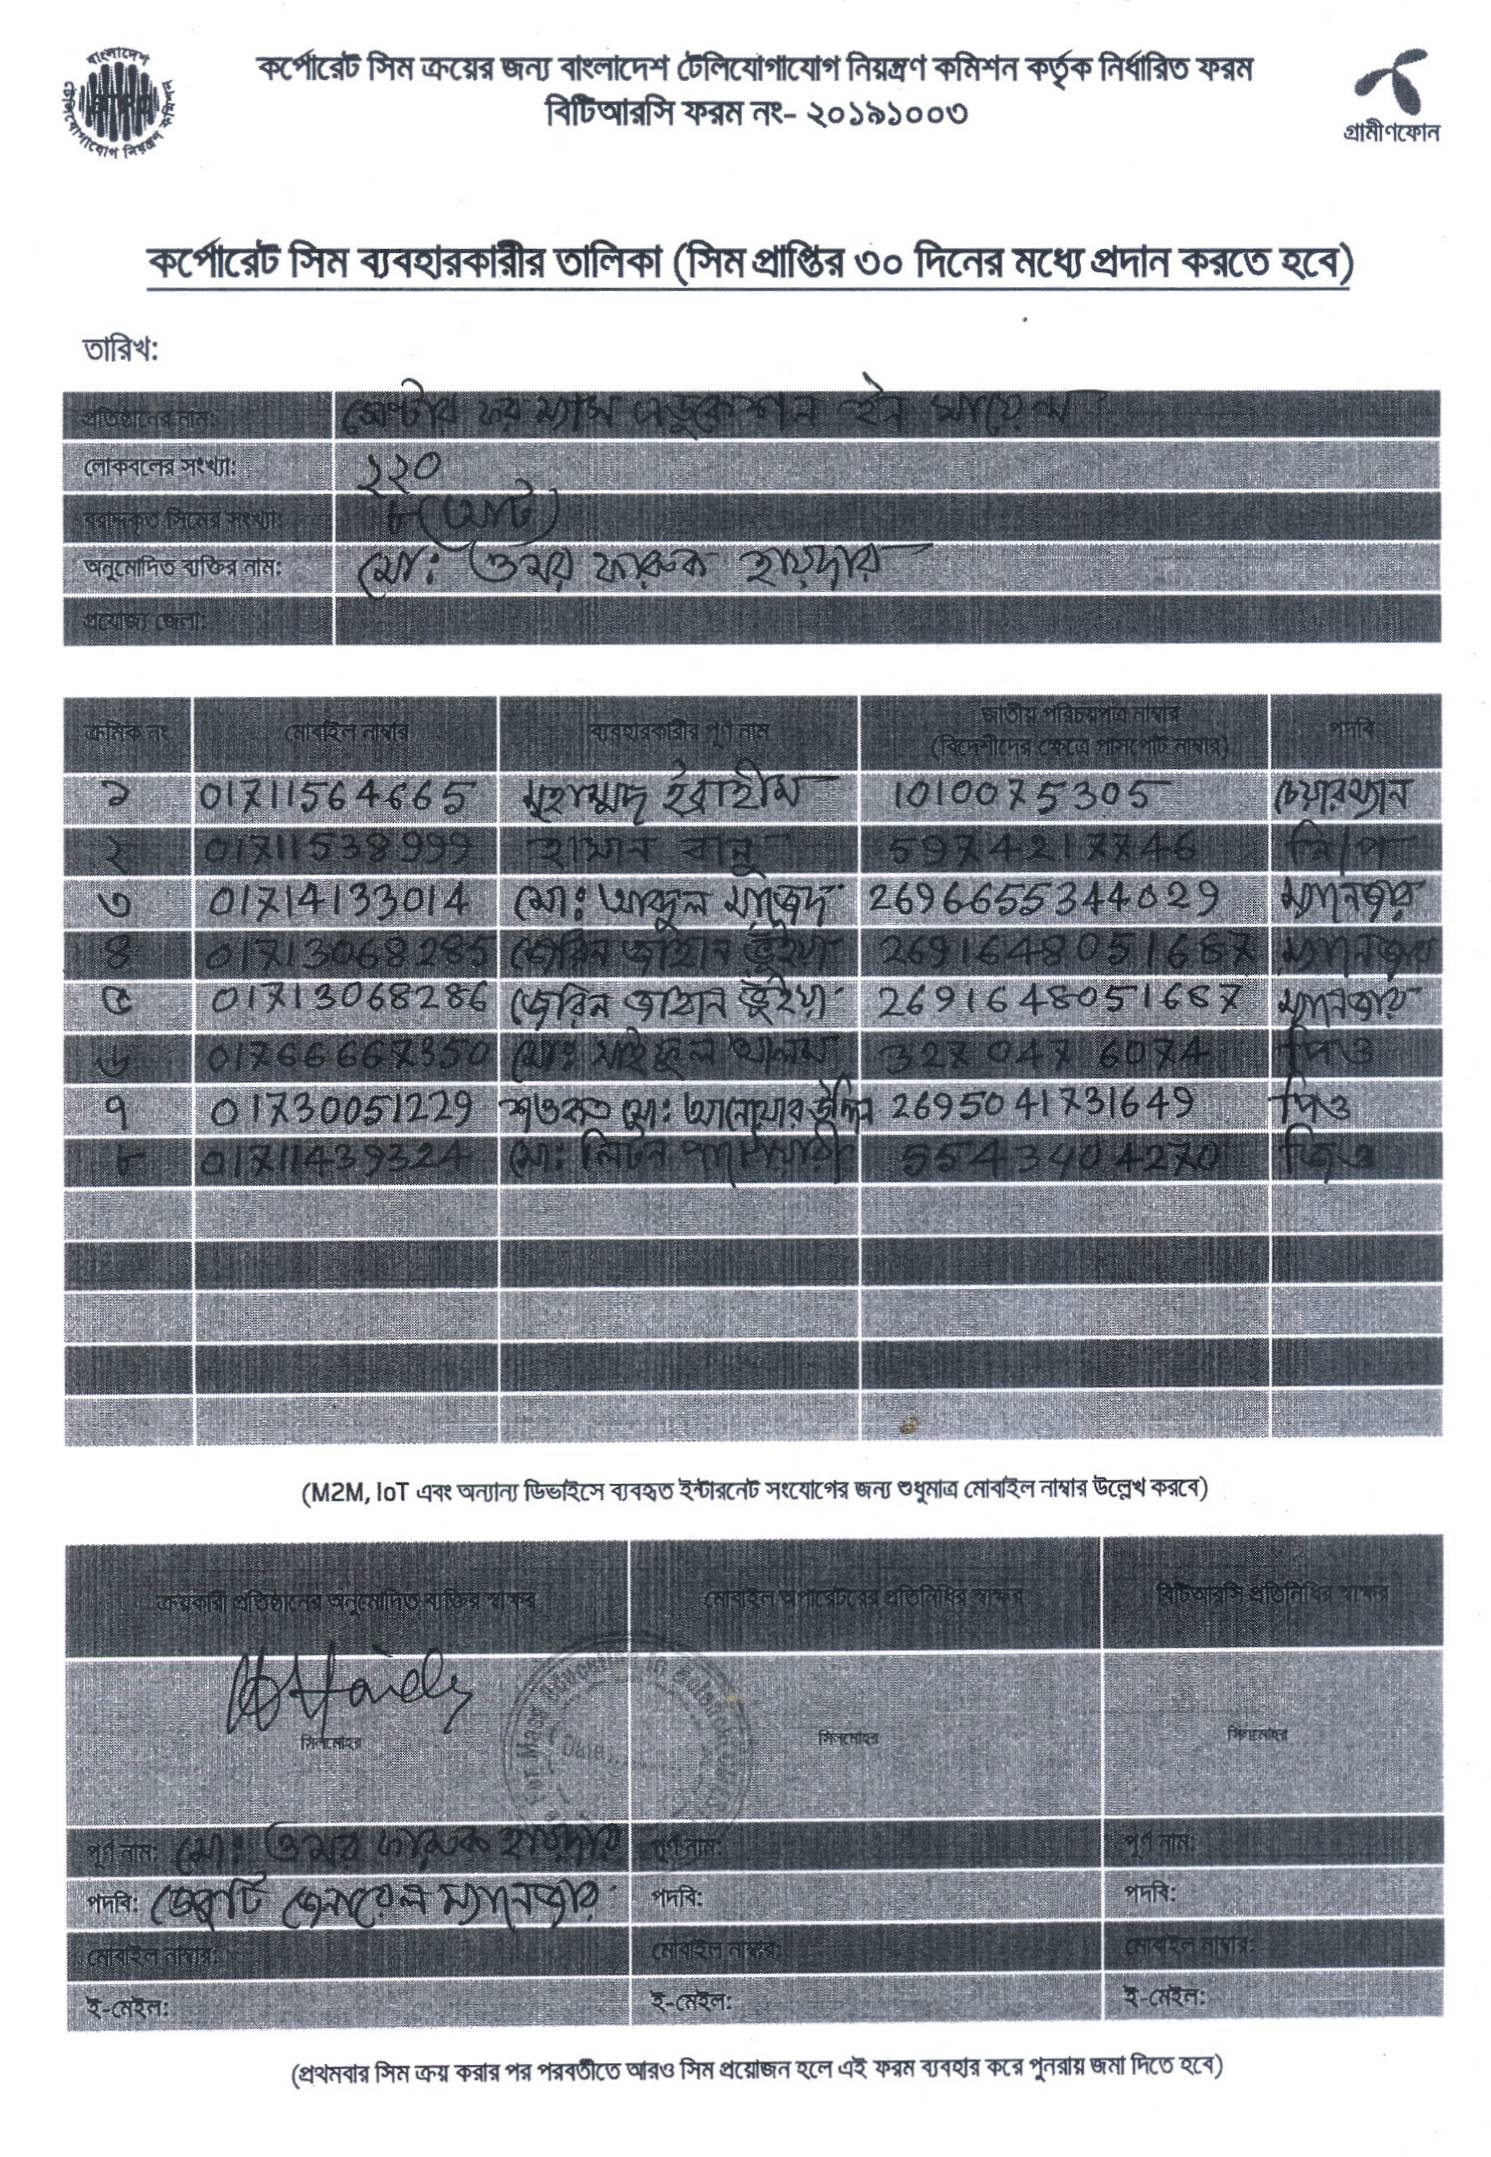 বাংলাদেশ
টেলিযোগাযোগ নিয়ন্ত্রণ কমিশন
কর্পোরেট সিম ক্রয়ের জন্য বাংলাদেশ টেলিযোগাযোগ নিয়ন্ত্রণ কমিশন কর্তৃক নির্ধারিত ফরম
বিটিআরসি ফরম নং- ২০১৯১০০৩
গ্রামীণফোন
কর্পোরেট সিম ব্যবহারকারীর তালিকা (সিম প্রাপ্তির ৩০ দিনের মধ্যে প্রদান করতে হবে)
তারিখ:
প্রতিষ্ঠানের নাম: সেন্টার ফর ম্যাস এডুকেশন ইন সায়েন্স
লোকবলের সংখ্যা: ২২০
বরাদ্দকৃত সিমের সংখ্যা: ৮ (আট)
অনুমোদিত ব্যক্তির নাম: মো: ওমর ফারুক হায়দার
প্রযোজ্য জেলা:
ক্রমিক নং মোবাইল নাম্বার ব্যবহারকারীর পূর্ণ নাম জাতীয় পরিচয়পত্র নাম্বার (বিদেশীদের ক্ষেত্রে পাসপোর্ট নাম্বার) পদবি
১ 01711564665 মুহাম্মদ ইব্রাহীম 1010075305 চেয়ারম্যান
২ 01711538999 হাসান বানু 5974217746 নি/প
৩ 01714133014 মো: আব্দুল মাজেদ 2696655344029 ম্যানেজার
৪ 01713068285 জেরিন জাহান ভূঁইয়া 2691648051687 ম্যানেজার
৫ 01713068286 জেরিন জাহান ভূঁইয়া 2691648051687 ম্যানেজার
৬ 01766667350 মো: সাইফুল আলম 3270476074 পিও
৭ 01730051229 শওকত মো: আনোয়ার উদ্দিন 2695041731649 পিও
৮ 01711439324 মো: লিটন পাটোয়ারী 5543404270 জিও
(M2M, IoT এবং অন্যান্য ডিভাইসে ব্যবহৃত ইন্টারনেট সংযোগের জন্য শুধুমাত্র মোবাইল নাম্বার উল্লেখ করবে)
ক্রয়কারী প্রতিষ্ঠানের অনুমোদিত ব্যক্তির স্বাক্ষর মোবাইল অপারেটরের প্রতিনিধির স্বাক্ষর বিটিআরসি প্রতিনিধির স্বাক্ষর
সিলমোহর সিলমোহর সিলমোহর
For Mass Education in Science
Date
পূর্ণ নাম: মো: ওমর ফারুক হায়দার পূর্ণ নাম: পূর্ণ নাম:
পদবি: ডেপুটি জেনারেল ম্যানেজার পদবি: পদবি:
মোবাইল নাম্বার: মোবাইল নাম্বার: মোবাইল নাম্বার:
ই-মেইল: ই-মেইল: ই-মেইল:
(প্রথমবার সিম ক্রয় করার পর পরবর্তীতে আরও সিম প্রয়োজন হলে এই ফরম ব্যবহার করে পুনরায় জমা দিতে হবে)